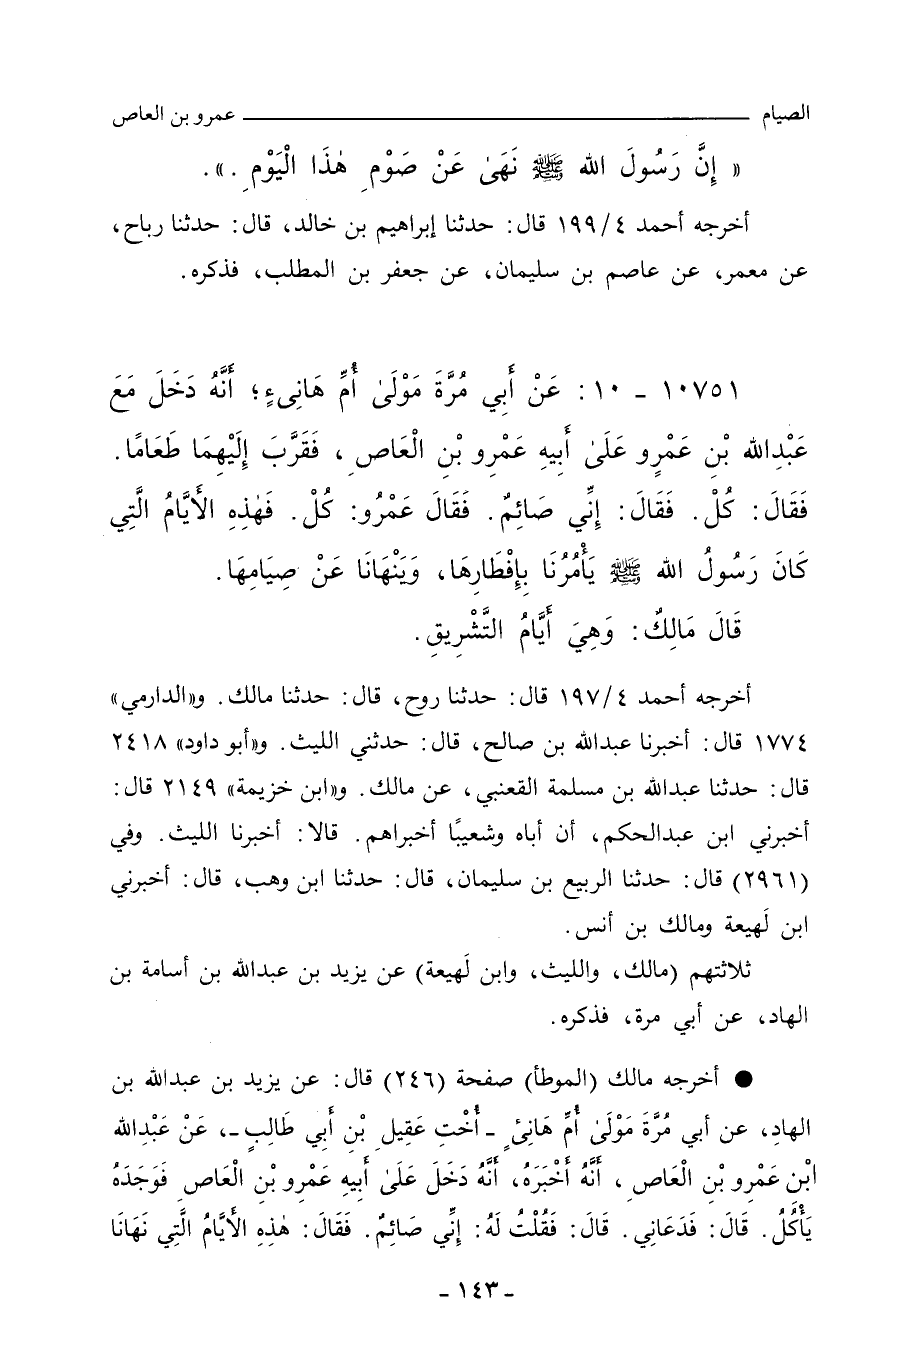 الصيام ــــــــــــــــــــــــــــــــ عمرو بن العاص
« إِنَّ رَسُولَ الله ﷺ نَهَىٰ عَنْ صَوْمِ هٰذَا الْيَوْمِ . ».
أخرجه أحمد ١٩٩/٤ قال: حدثنا إبراهيم بن خالد، قال: حدثنا رباح،
عن معمر، عن عاصم بن سليمان، عن جعفر بن المطلب، فذكره.
١٠٧٥١ - ١٠: عَنْ أَبِي مُرَّةَ مَوْلَىٰ أُمِّ هَانِىءٍ؛ أَنَّهُ دَخَلَ مَعَ
عَبْدِالله بْنِ عَمْرٍو عَلَىٰ أَبِيهِ عَمْرِو بْنِ الْعَاصِ ، فَقَرَّبَ إِلَيْهِمَا طَعَامًا.
فَقَالَ: كُلْ. فَقَالَ: إِنِّي صَائِمٌ. فَقَالَ عَمْرُو: كُلْ. فَهٰذِهِ الأَيَّامُ الَّتِي
كَانَ رَسُولُ الله ﷺ يَأْمُرُنَا بِإِفْطَارِهَا، وَيَنْهَانَا عَنْ صِيَامِهَا.
قَالَ مَالِكٌ: وَهِيَ أَيَّامُ التَّشْرِيقِ.
أخرجه أحمد ١٩٧/٤ قال: حدثنا روح، قال: حدثنا مالك. و«الدارمي»
١٧٧٤ قال: أخبرنا عبدالله بن صالح، قال: حدثني الليث. و«أبو داود» ٢٤١٨
قال: حدثنا عبدالله بن مسلمة القعنبي، عن مالك. و«ابن خزيمة» ٢١٤٩ قال:
أخبرني ابن عبدالحكم، أن أباه وشعيبًا أخبراهم. قالا: أخبرنا الليث. وفي
(٢٩٦١) قال: حدثنا الربيع بن سليمان، قال: حدثنا ابن وهب، قال: أخبرني
ابن لَهيعة ومالك بن أنس.
ثلاثتهم (مالك، والليث، وابن لَهيعة) عن يزيد بن عبدالله بن أسامة بن
الهاد، عن أبي مرة، فذكره.
● أخرجه مالك (الموطأ) صفحة (٢٤٦) قال: عن يزيد بن عبدالله بن
الهادِ، عن أبي مُرَّةَ مَوْلَىٰ أُمِّ هَانِئٍ - أُخْتِ عَقِيلِ بْنِ أَبِي طَالِبٍ -، عَنْ عَبْدِالله
ابْنِ عَمْرِو بْنِ الْعَاصِ ، أَنَّهُ أَخْبَرَهُ، أَنَّهُ دَخَلَ عَلَىٰ أَبِيهِ عَمْرِو بْنِ الْعَاصِ فَوَجَدَهُ
يَأْكُلُ. قَالَ: فَدَعَانِي. قَالَ: فَقُلْتُ لَهُ: إِنِّي صَائِمٌ. فَقَالَ: هٰذِهِ الأَيَّامُ الَّتِي نَهَانَا
- ١٤٣ -